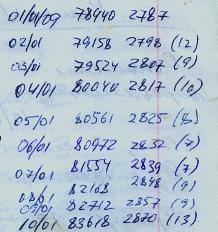 01/01/09 78940 2787
02/01 79158 2798 (12)
03/01 79524 2807 (9)
04/01 80040 2817 (10)
05/01 80561 2825 (8)
06/01 80972 2832 (7)
07/01 81554 2839 (7)
08/01 82108 2848 (9)
09/01 82712 2857 (9)
10/01 83618 2870 (13)